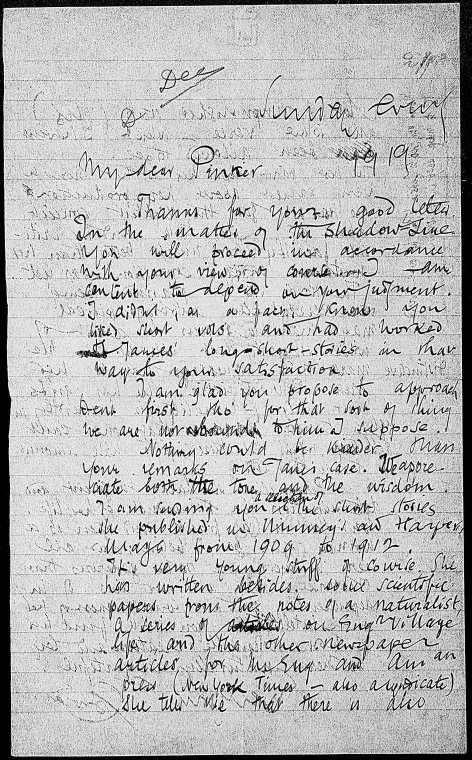 Dec
Sunday Even
1919
My dear Pinker
Thanks for your good letter.
In the matter of the Shadow-Line
You will proceed in accordance
with your view of course. I am
content to depend on your judgment.
I didn't as a fact know you
liked short vols and had worked
James' long-short-stories in that
way to your satisfaction.
I am glad you propose to approach
Dent first tho' for that sort of thing
we are not bound to him I suppose.
Nothing could be kinder than
your remarks on Jane's case. I appre-
ciate both the tone and the wisdom.
I am sending you a selection of the short stories
she published in Munsey's and Harper
Mags from 1909 to 1912.
It's very young stuff of course. She
has written besides some scientific
papers from the notes of a naturalist,
a series of on Eng Village
life and the other newspaper
articles for the Eng and Am an
press (New York Times - also a syndicate)
She tells me that there is also